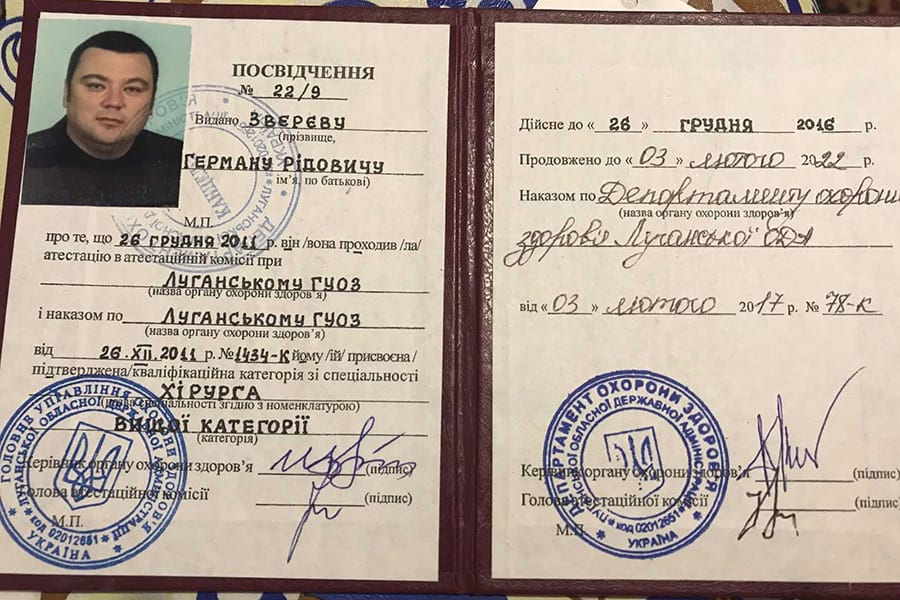 ПОСВІДЧЕННЯ
№ 22/9
Видано ЗВЕРЕВУ
(прізвище,
ГЕРМАНУ РІДОВИЧУ
ім’я, по батькові)
М.П.
про те, що 26 ГРУДНЯ 2011 р. він /вона проходив /ла/
атестацію в атестаційній комісії при
Луганському ГУОЗ
(назва органу охорони здоров’я)
і наказом по Луганському ГУОЗ
(назва органу охорони здоров’я)
від 26.XII.2011 р. №1434-К йому /їй/ присвоєна /
підтверджена/кваліфікаційна категорія зі спеціальності
ХІРУРГА
(назва спеціальності згідно з номенклатурою)
ВИЩОЇ КАТЕГОРІЇ
(категорія)
Керівник органу охорони здоров’я (підпис)
Голова атестаційної комісії (підпис)
М.П.
ГОЛОВНЕ УПРАВЛІННЯ ОХОРОНИ ЗДОРОВ'Я
ЛУГАНСЬКОЇ ОБЛАСНОЇ ДЕРЖАВНОЇ АДМІНІСТРАЦІЇ
код 02012651
УКРАЇНА
Дійсне до « 26 » ГРУДНЯ 2016 р.
Продовжено до « 03 » лютого 2022 р.
Наказом по Департаменту охорони
(назва органу охорони здоров’я)
здоров'я Луганської ОДА
від « 03 » лютого 2017 р. № 78-к
Керівник органу охорони здоров’я (підпис)
Голова атестаційної комісії (підпис)
М.П.
ДЕПАРТАМЕНТ ОХОРОНИ ЗДОРОВ'Я
ЛУГАНСЬКОЇ ОБЛАСНОЇ ДЕРЖАВНОЇ АДМІНІСТРАЦІЇ
код 02012651
УКРАЇНА